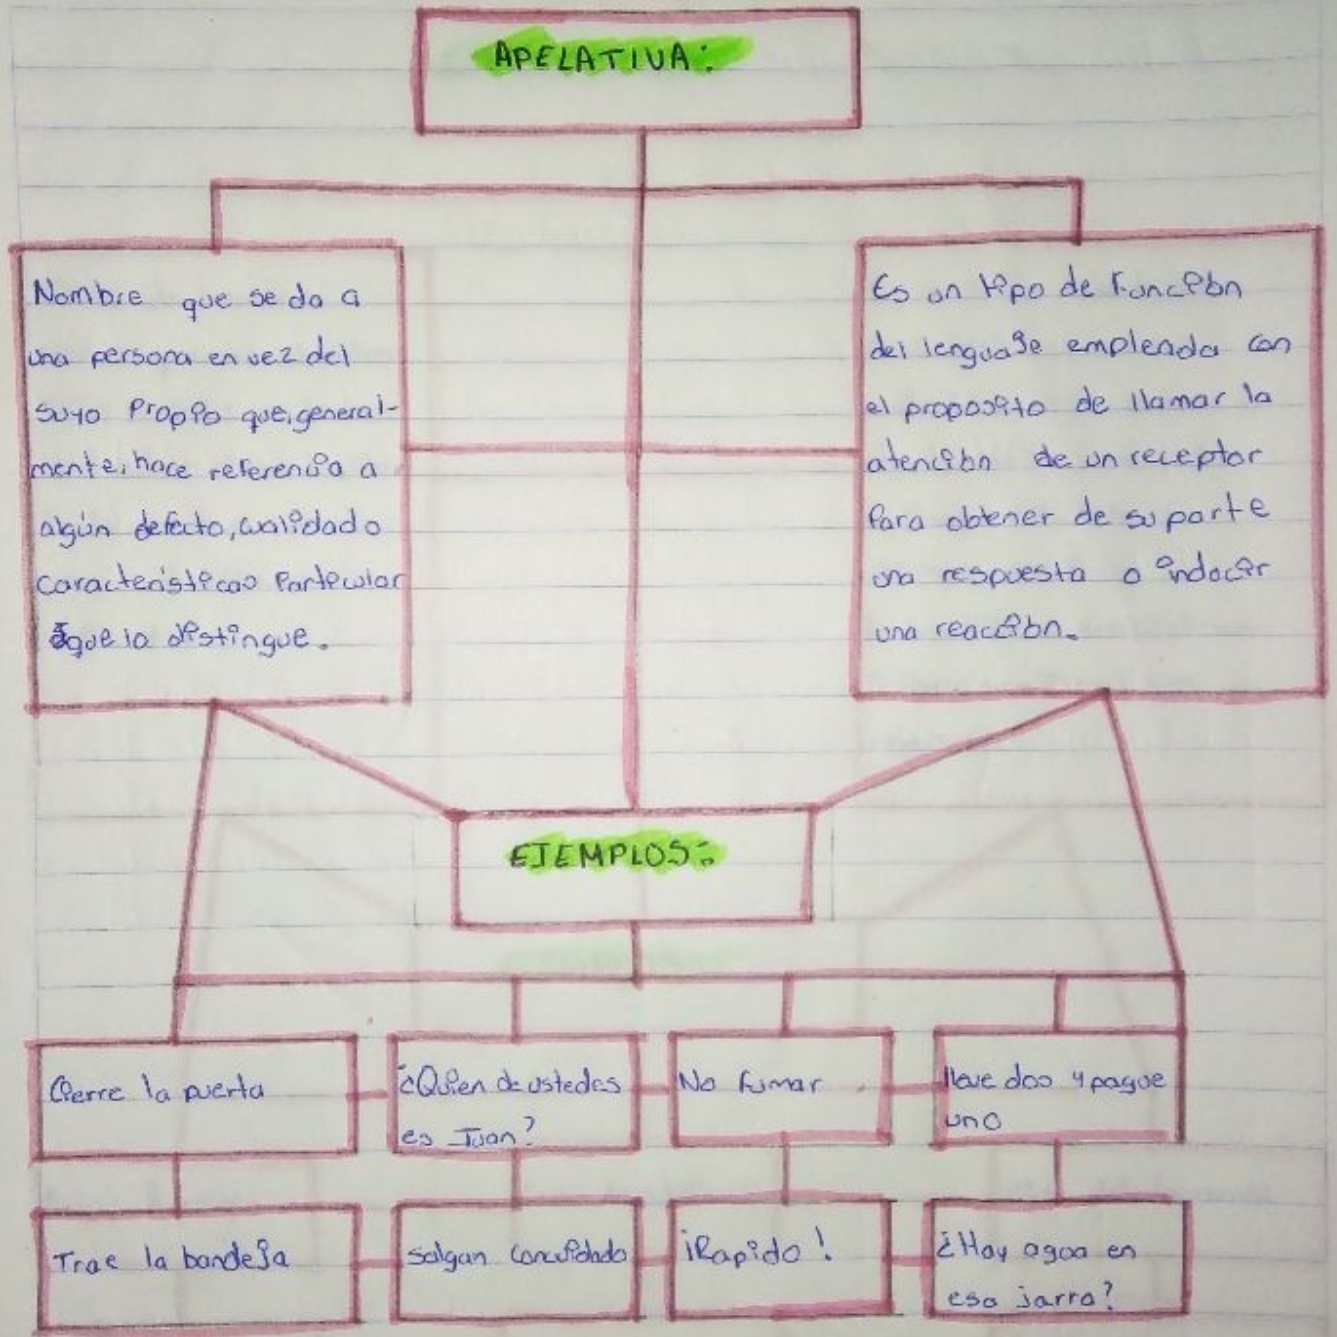 APELATIVA:
Nombre que se da a
una persona en vez del
suyo Propio que, general-
mente, hace referencia a
algún defecto, cualidad o
caracteristicas Particular
que lo distingue.
Es un tipo de Función
del lenguaje empleada con
el proposito de llamar la
atención de un receptor
Para obtener de su parte
una respuesta o inducir
una reacción.
EJEMPLOS:
Cierre la puerta
¿Quien de ustedes
es Juan?
No fumar
lleve dos y pague
uno
Trae la bandeja
salgan concuidado
¡Rapido!
¿Hay agua en
esa jarra?